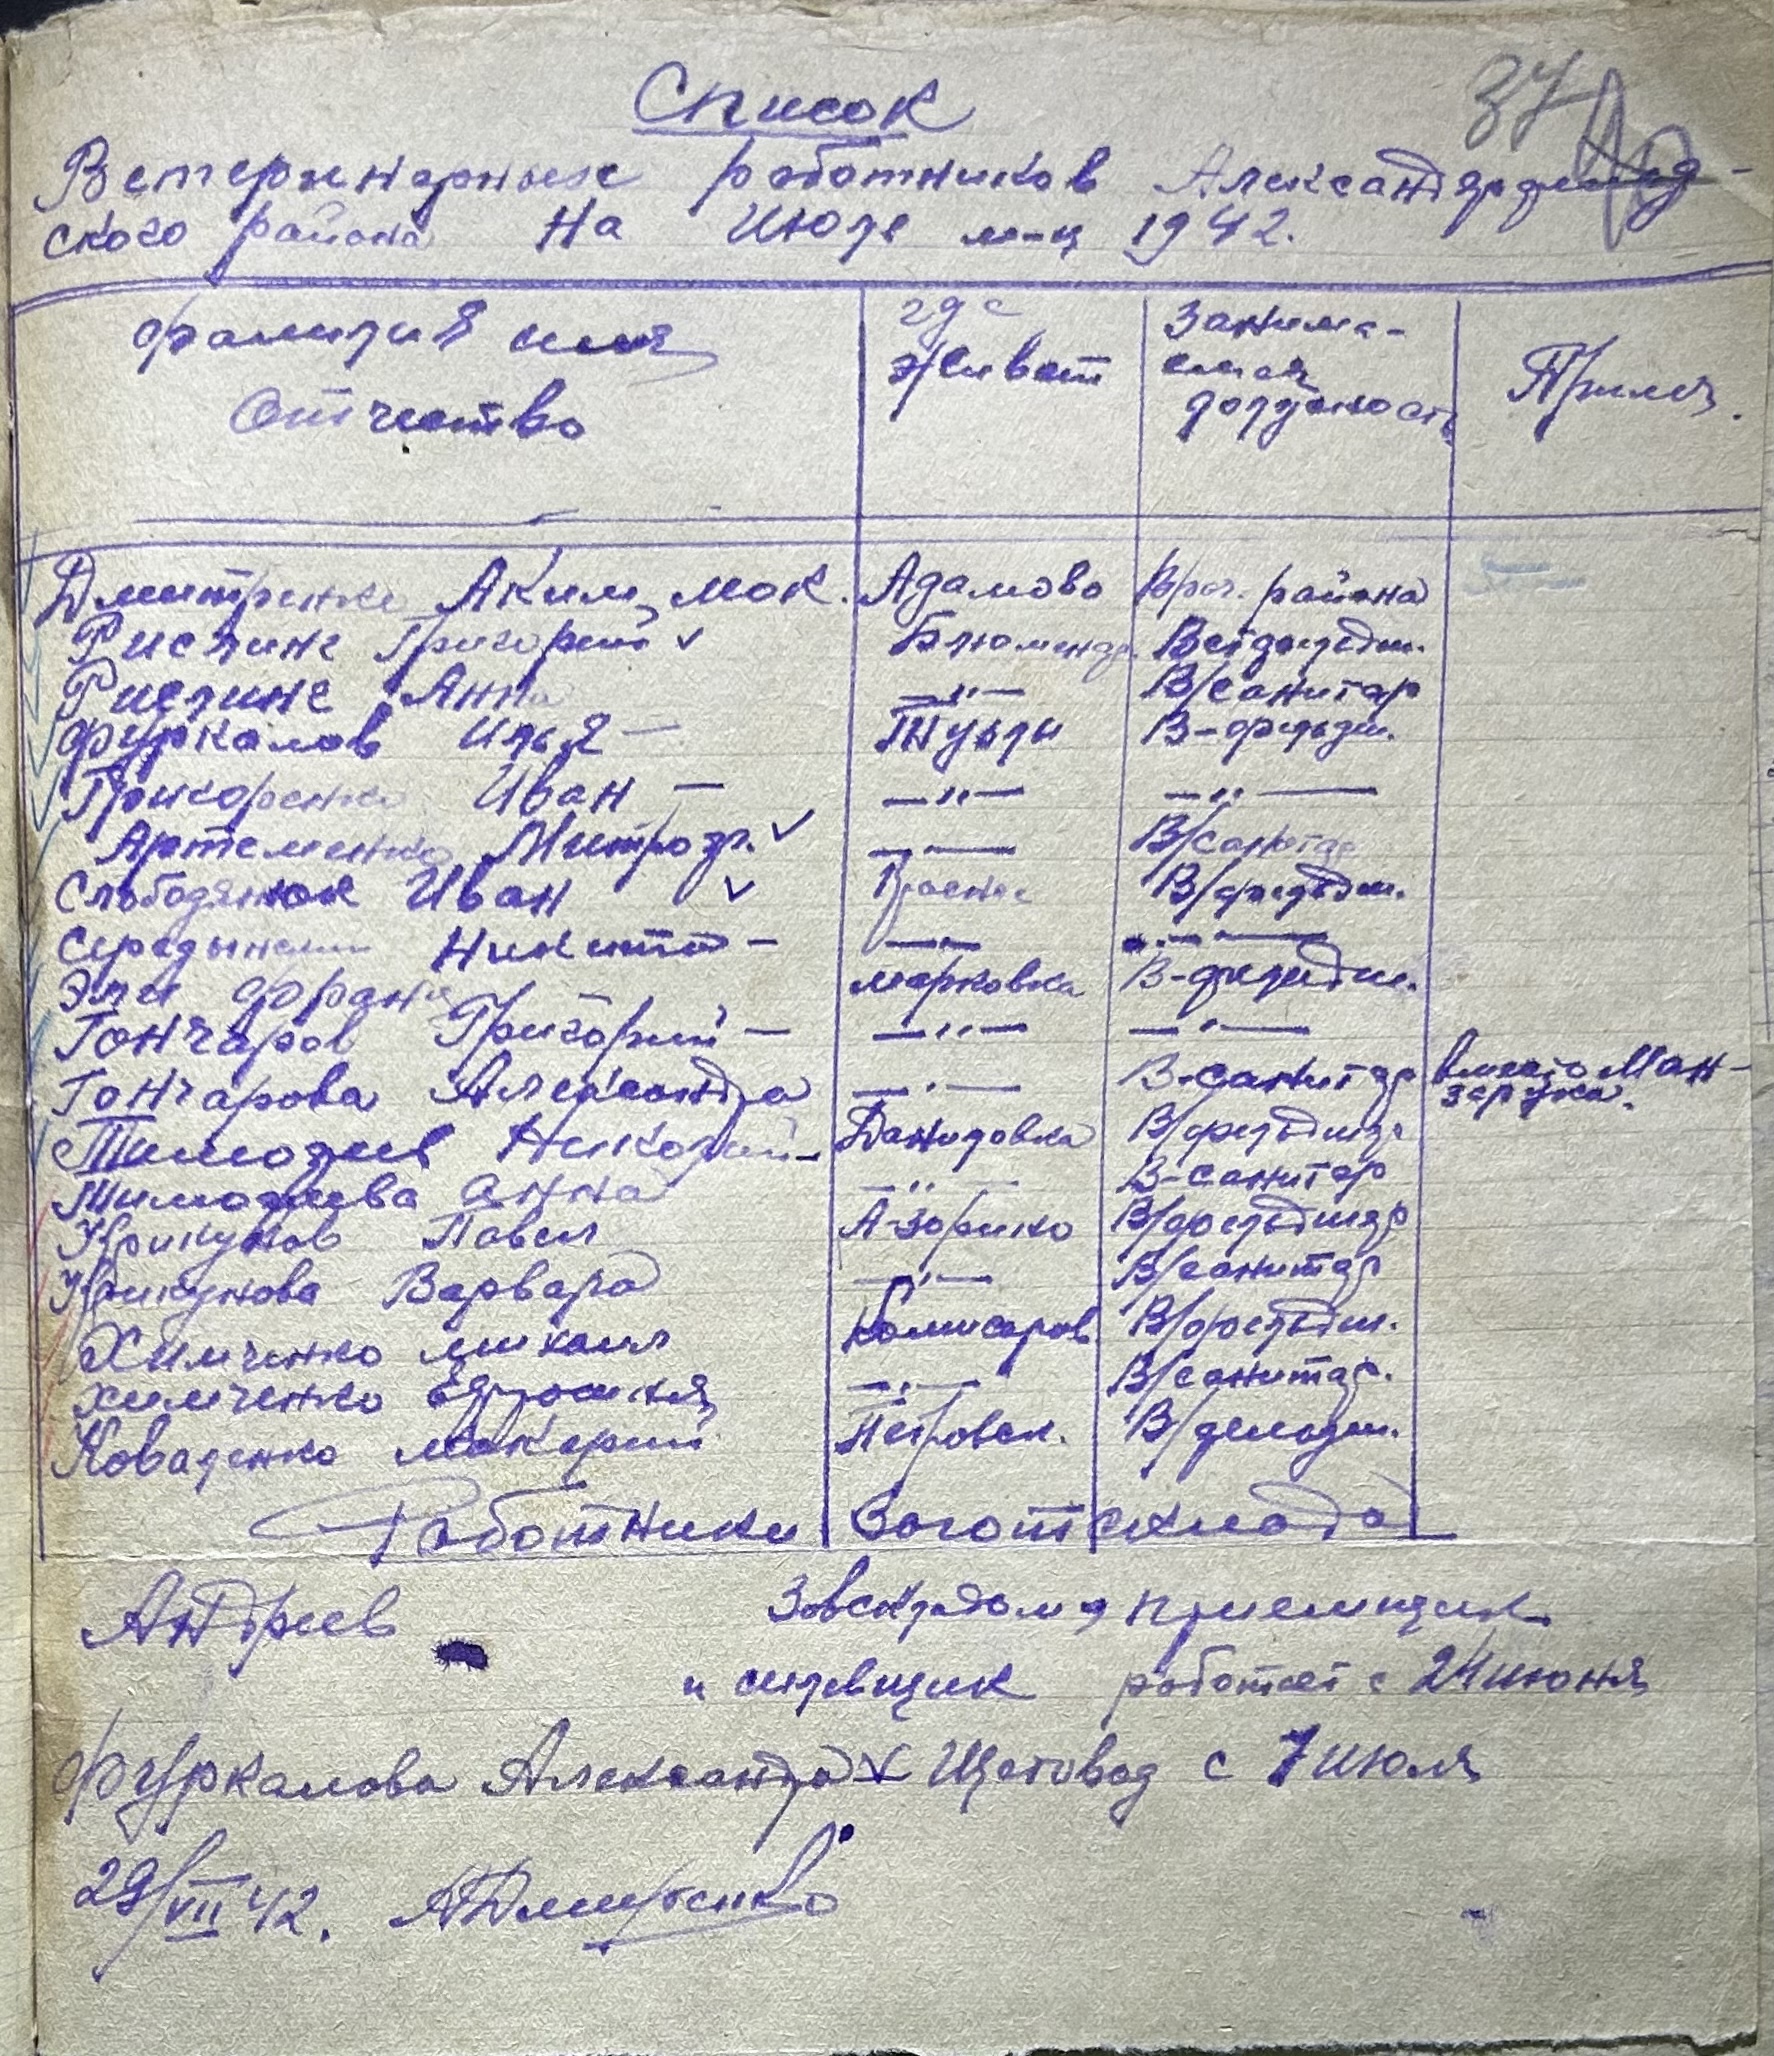 37
Список
Ветеринарных работников Александерфельд-
ского района на Июль м-ц 1942.
Фамилия имя Отчество | где живет | Занима-емая должность | Примеч.
Дмитренко Аким Мак. | Адамово | Врач. района
Рислинг Григорий ✓ | Блюменда. | Ветфельдш.
Рислинг Анна | —"— | В/санитар
Фуркалов Илья — | Тузлы | В-фельдш.
Григоренко Иван — | —"— | —"—
Артеменко Митроф. ✓ | —"— | В/санитар
Слободянюк Иван ✓ | | В/фельдш.
Никита — | —"— | —"—
Франц | Марковка | В-фельдш.
Гончаров Григорий — | —"— | —"—
Гончарова Александра | —"— | В-санитар | вместо Ман-
Тимофеев Николай — | Даниловка | В/фельдшер
Тимофеева Анна | —"— | В-санитар
Крикунов Павел | А-Зорино | В/фельдшер
Крикунова Варвара | —"— | В/санитар
Химченко Михаил | Комисаров | В/фельдш.
Химченко Ефросиния | —"— | В/санитар.
Коваленко Макарий | Петровск. |
Работники Заготсклада
Андреев Завскладом, приемщик
и работает с 24 июня
Фуркалова Александра ✓ Щетовод с 7 июля
29/VII 42. АДмитренко